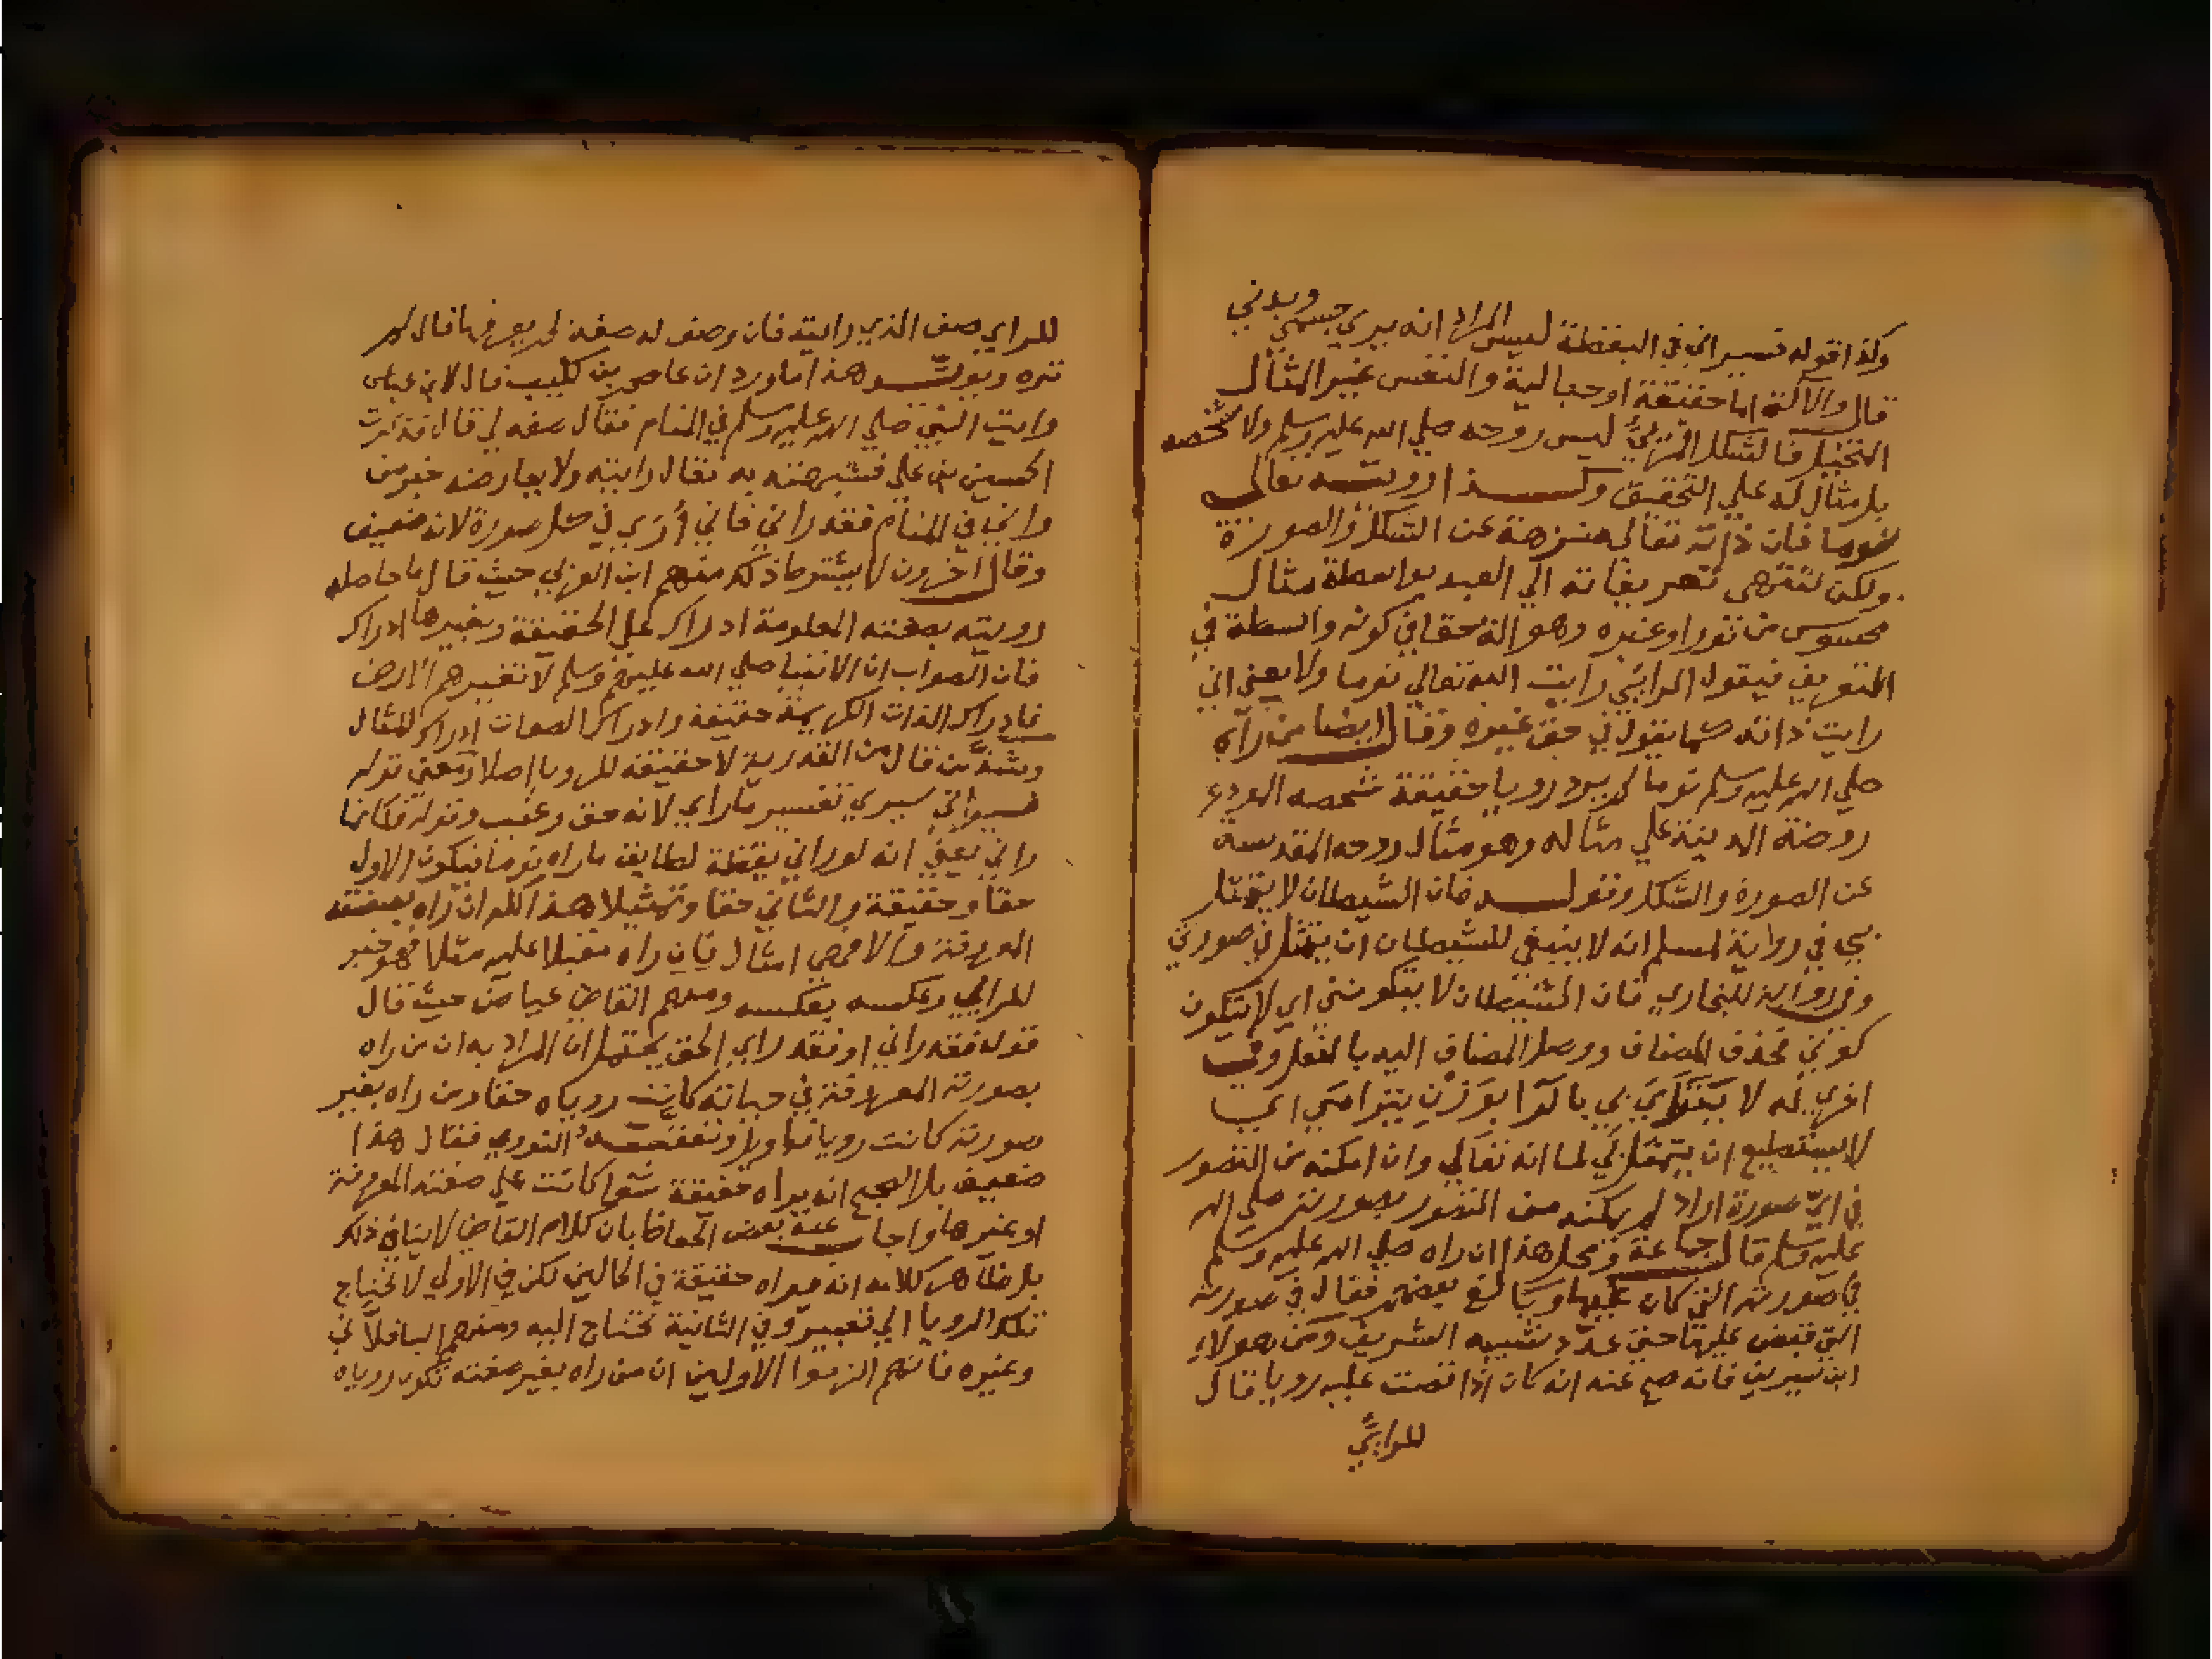 وكذا قوله فسيراني في اليقظة ليس المراد انه يري جسمي وبدني
قال والآلة اما حقيقة او خيالية والنفس غير المثال
المتخيل فالشكل المرئي ليس روحه صلي الله عليه وسلم ولا شخصه
بل مثال له علي التحقيق وكذا رويته تعالى
نوما فان ذاته تعالي منزهة عن الشكل والصورة
ولكن تنتهى تعريفاته الي العبد بواسطة مثال
محسوس من نور او غيره وهو آلة حقا في كونه واسطة في
التعريف فيقول الرائي رايت الله تعالي نوما ولا يعني اني
رايت ذاته كما يقول في حق غيره وقال ايضا من رآه
صلي الله عليه وسلم نوما لم يرد رويا حقيقة شخصه المودع
روضة المدينة علي مثاله وهو مثال روحه المقدسة
عن الصورة والشكل وقوله فان الشيطان لا يتمثل
بي في رواية لمسلم انه لا ينبغي للشيطان ان يتمثل في صورتي
وفي رواية للبخاري فان الشيطان لا يتكونني اي لا يتكون
كوني فحذف المضاف ووصل المضاف اليه بالفعل وفي
اخري له لا يتراءى بي بالرا بوزن يترامى اي
لا يستطيع ان يتمثل بي لما انه تعالي وان امكنه من التصور
في اي صورة اراد لم يمكنه من التصور بصورته صلي الله
عليه وسلم قال جماعة ومحل هذا ان راه صلي الله عليه وسلم
في صورته التي كان عليها وبالغ بعضهم فقال في صورته
التي قبض عليها حتي عدد شيبه الشريف ومن هولاء
ابن سيرين فانه صح عنه انه كان اذا قصت عليه رويا قال
للرائي
للراي صف الذي رايته فان وصف له صفة لم يعرفها قال لم
تره ويويده هذا ما ورد ان عاصم بن كليب قال لابن عباس
رايت النبي صلي الله عليه وسلم في المنام فقال صفه لي قال فذكرت
الحسين بن علي فشبهته به فقال رايته ولا يعارضه خبر من
راني في المنام فقد راني فاني أُرَي في كل صورة لانه ضعيف
وقال اخرون لا يشترط ذلك منهم ابن العربي حيث قال ما حاصله
رويته بصفته المعلومة ادراك علي الحقيقة وبغيرها ادراك
فان الصواب ان الانبيا صلي الله عليهم وسلم لا تغيرهم الارض
فادراك الذات الكريمة حقيقة وادراك الصفات ادراك للمثال
وشذ من قال من القدرية لا حقيقة للرويا اصلا ومعني قوله
فسيراني سيري تفسير ما راي لانه حق وغيب وقوله فكانما
راني يعني انه لو راني يقظة لطابق ما راه نوما فيكون الاول
حقا وحقيقة والثاني حقا وتمثيلا هذا كله ان راه بصفته
المعروفة والا فهي امثال فان راه مقبلا عليه مثلا فهو خير
للرائي وعكسه بعكسه ومنهم القاضي عياض حيث قال
قوله فقد راني او فقد راي الحق يحتمل ان المراد به ان من راه
بصورته المعروفة في حياته كانت روياه حقا ومن راه بغير
صورته كانت رويا تاويل وتعقبه النووي فقال هذا
ضعيف بل الصحيح انه يراه حقيقة سوا كانت علي صفته المعروفة
او غيرها واجاب عنه بعض الحفاظ بان كلام القاضي لا ينافي ذلك
بل ظاهر كلامه انه يراه حقيقة في الحالين لكن في الاولي لا تحتاج
تلك الرويا الي تعبير وفي الثانية تحتاج اليه ومنهم الباقلاني
وغيره فانهم الزموا الاولين ان من راه بغير صفته تكون روياه